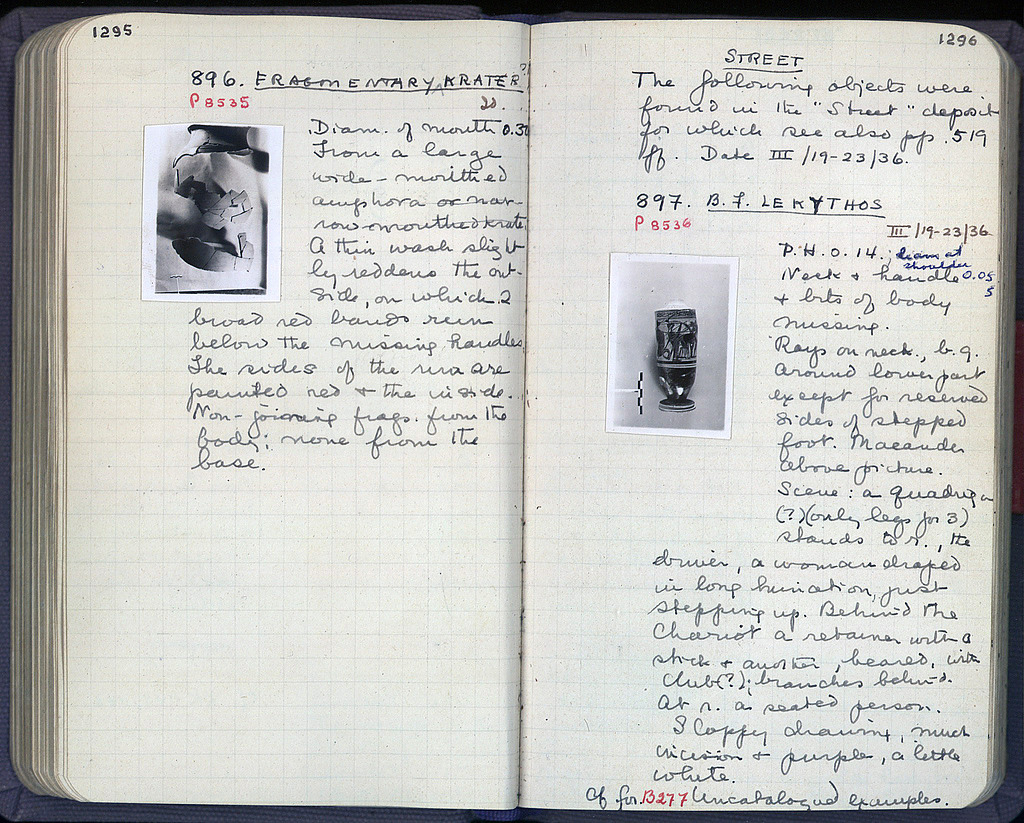 1295
896. FRAGMENTARY KRATER ?
P 8535
20.
Diam. of mouth 0.30
From a large
wide-mouthed
amphora or nar-
row-mouthed krater
A thin wash slight
ly reddens the out-
side, on which 2
broad red bands run
below the missing handles
The sides of the rim are
painted red & the inside.
Non-joining frags. from the
body; none from the
base.
1296
STREET
The following objects were
found in the "Street" deposit
for which see also pp. 519
ff. Date III/19-23/36.
897. B.F. LEKYTHOS
P 8536
III/19-23/36
P.H. 0.14. diam at
shoulder
Neck & handle 0.05
5
& bits of body
missing.
Rays on neck, b.g.
around lower part
except for reserved
sides of stepped
foot. Maeander
above picture.
Scene: a quadriga
(?) (only legs for 3)
stands to r., the
driver, a woman draped
in long himation, just
stepping up. Behind the
Chariot a retainer with a
stick & another, beared, with
club(?); branches behind.
At r. a seated person.
Sloppy drawing, much
incision & purple, a little
white.
Cf for B277 Uncatalogued examples.